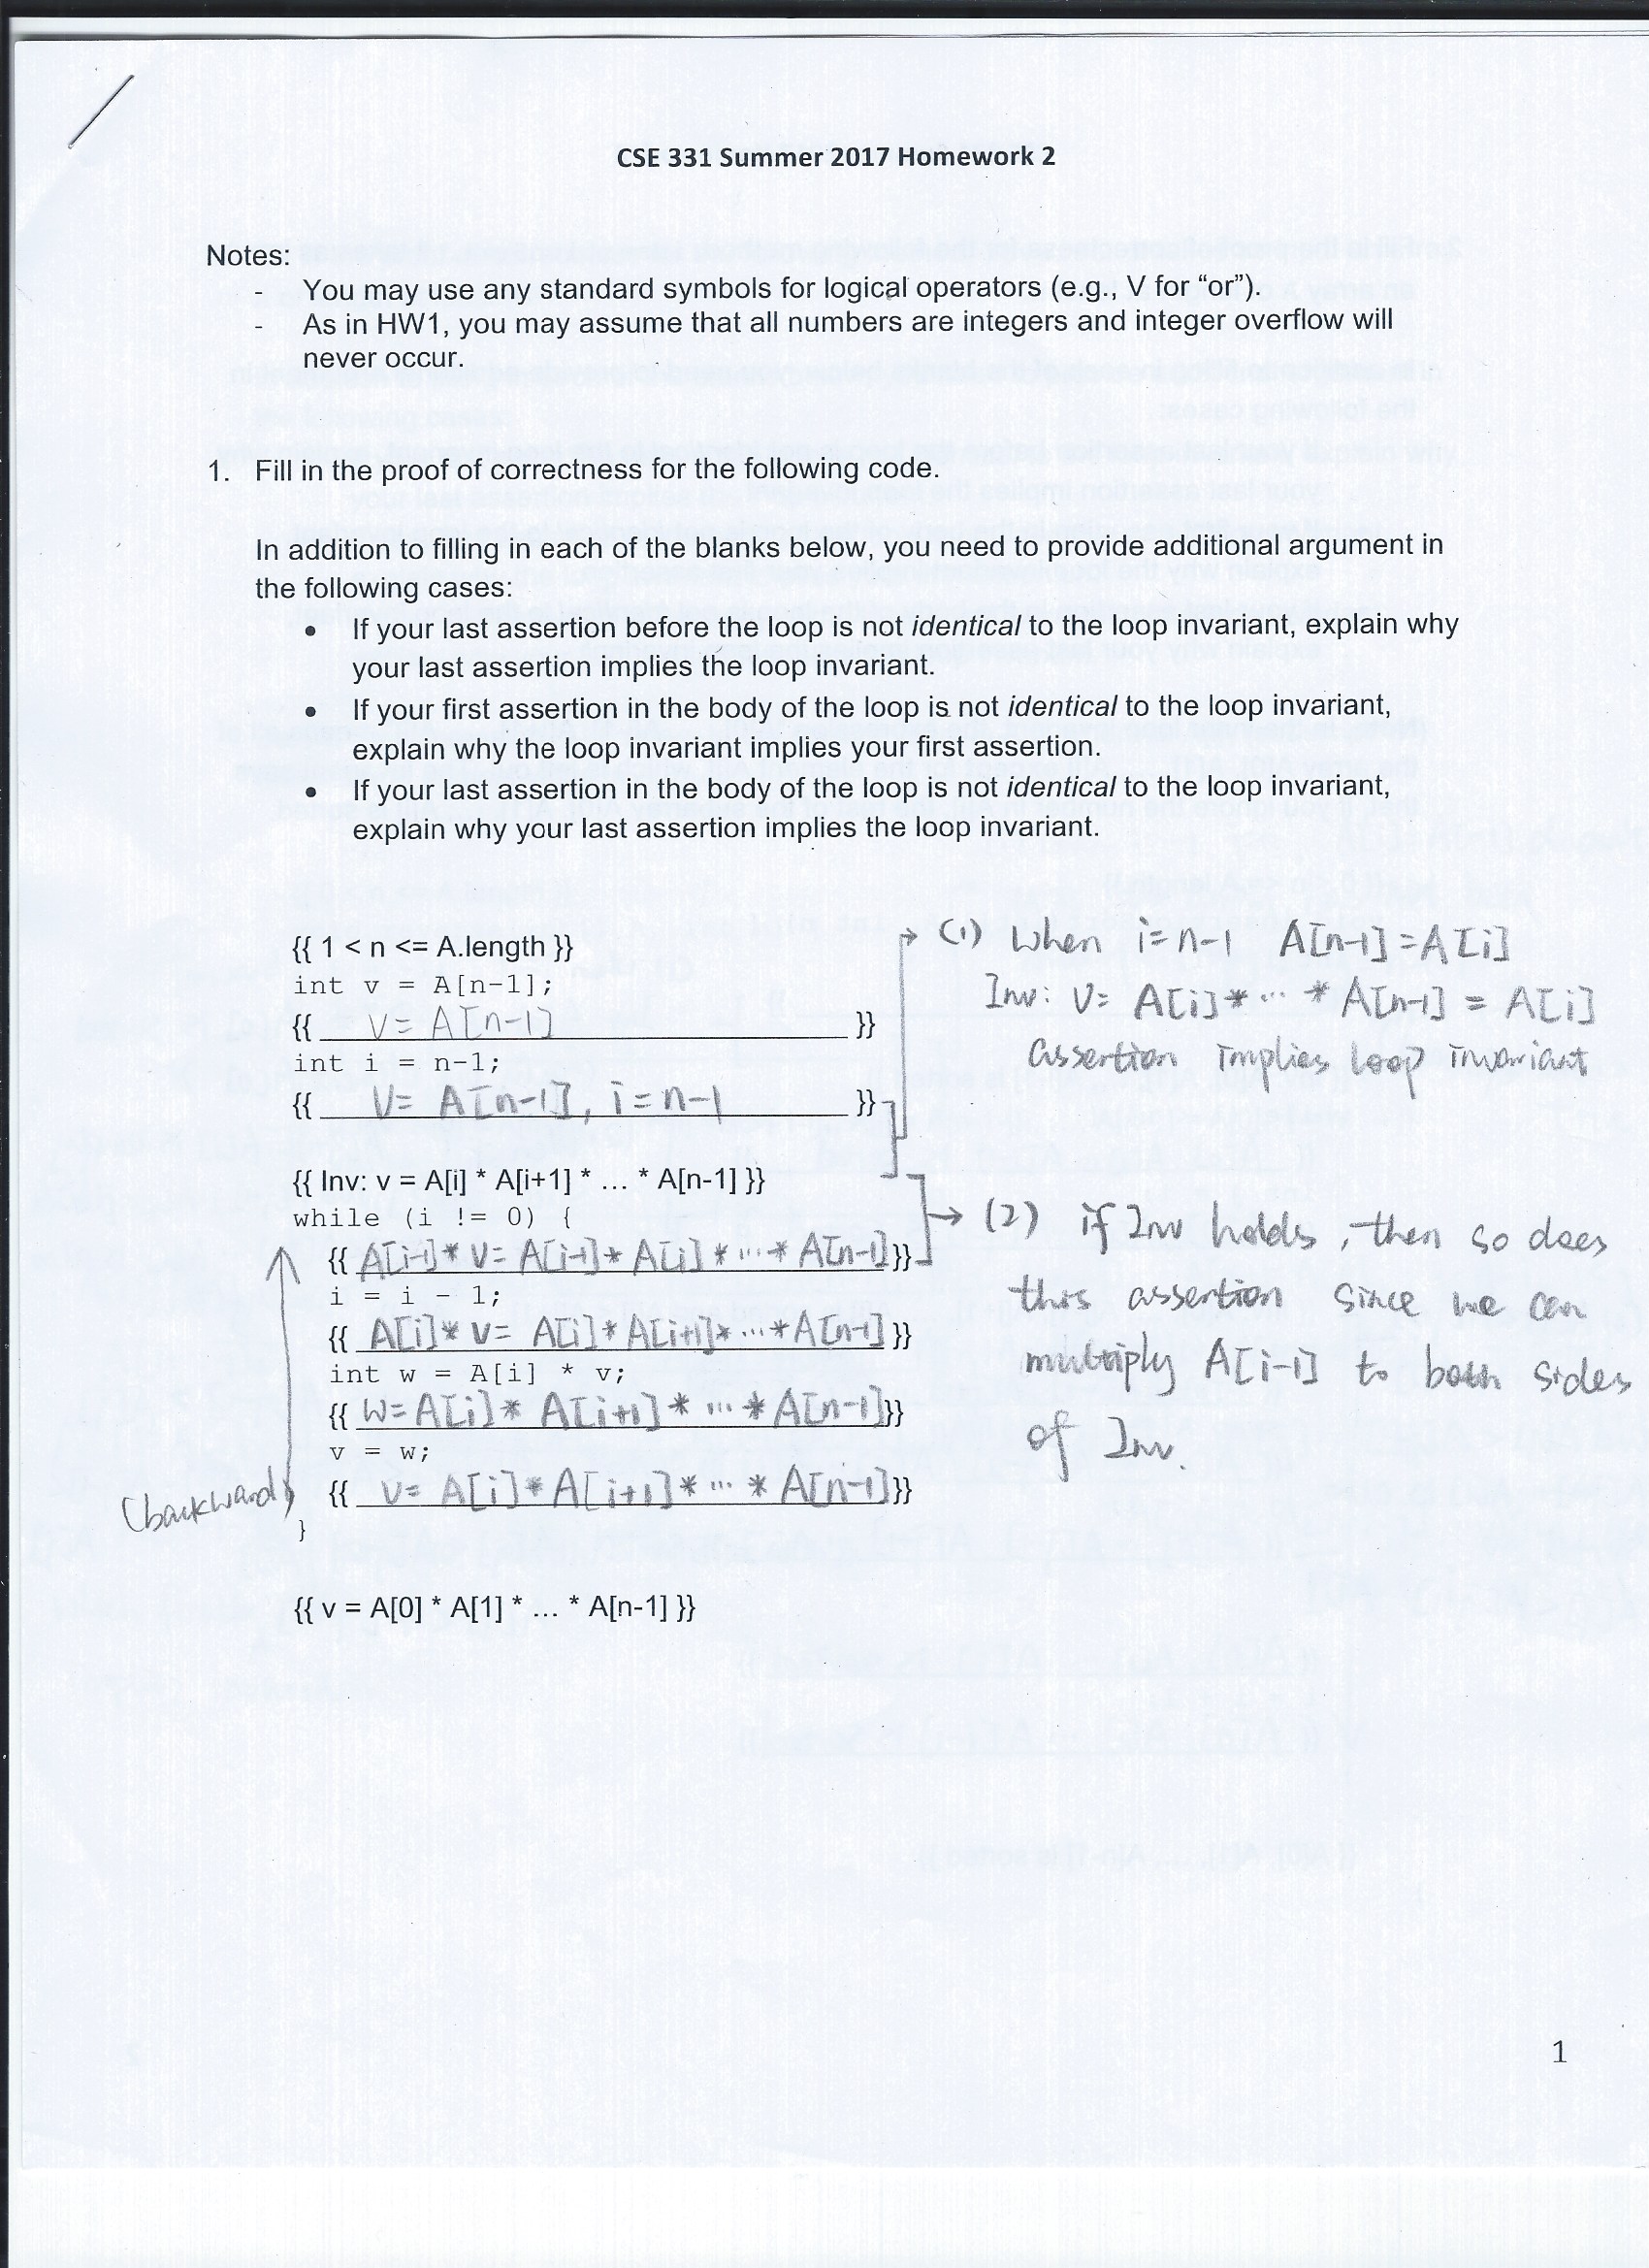 CSE 331 Summer 2017 Homework 2
Notes:
- You may use any standard symbols for logical operators (e.g., V for “or”).
- As in HW1, you may assume that all numbers are integers and integer overflow will
never occur.
1. Fill in the proof of correctness for the following code.
In addition to filling in each of the blanks below, you need to provide additional argument in
the following cases:
• If your last assertion before the loop is not identical to the loop invariant, explain why
your last assertion implies the loop invariant.
• If your first assertion in the body of the loop is not identical to the loop invariant,
explain why the loop invariant implies your first assertion.
• If your last assertion in the body of the loop is not identical to the loop invariant,
explain why your last assertion implies the loop invariant.
{{ 1 < n <= A.length }}
int v = A[n-1];
{{ V= A[n-1] }}
int i = n-1;
{{ V= A[n-1], i=n-1 }}
→ (1) When i=n-1 A[n-1]=A[i]
Inv: V= A[i]* ... * A[n-1] = A[i]
assertion implies loop invariant
{{ Inv: v = A[i] * A[i+1] * ... * A[n-1] }}
while (i != 0) {
{{ A[i-1]* V= A[i-1]* A[i] * ... * A[n-1] }}
i = i - 1;
{{ A[i]* V= A[i]* A[i+1]* ... *A[n-1] }}
int w = A[i] * v;
{{ W= A[i]* A[i+1]* ... *A[n-1] }}
v = w;
{{ V= A[i]*A[i+1]* ... * A[n-1] }}
}
(backward)
→ (2) if Inv holds, then so does
this assertion since we can
multiply A[i-1] to both sides
of Inv.
{{ v = A[0] * A[1] * ... * A[n-1] }}
1